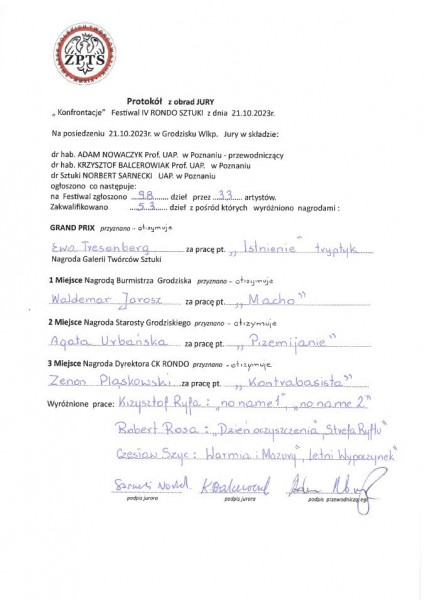 ZPTS
Protokół z obrad JURY
„Konfrontacje" Festiwal IV RONDO SZTUKI z dnia 21.10.2023r.
Na posiedzeniu 21.10.2023r. w Grodzisku Wlkp. Jury w składzie:
dr hab. ADAM NOWACZYK Prof. UAP. w Poznaniu - przewodniczący
dr hab. KRZYSZTOF BALCEROWIAK Prof. UAP. w Poznaniu
dr Sztuki NORBERT SARNECKI UAP. w Poznaniu
ogłoszono co następuje:
na Festiwal zgłoszono 98 dzieł przez 33 artystów.
Zakwalifikowano 53 dzieł z pośród których wyróżniono nagrodami :
GRAND PRIX przyznano - otrzymuje
Ewa Tresenberg za pracę pt. „Istnienie" tryptyk
Nagroda Galerii Twórców Sztuki
1 Miejsce Nagrodą Burmistrza Grodziska przyznano - otrzymuje
Waldemar Jarosz za pracę pt. „Macho"
2 Miejsce Nagroda Starosty Grodziskiego przyznano - otrzymuje
Agata Urbańska za pracę pt. „Przemijanie"
3 Miejsce Nagroda Dyrektora CK RONDO przyznano - otrzymuje
Zenon Pląskowski za pracę pt. „Kontrabasista"
Wyróżnione prace: Krzysztof Ryfa : „no name 1", „no name 2"
Robert Rosa : „Dzień oczyszczenia", „Strefa Ryftu"
Czesław Szyc : Warmia i Mazury", „Letni Wypoczynek"
podpis jurora podpis jurora podpis przewodniczącego